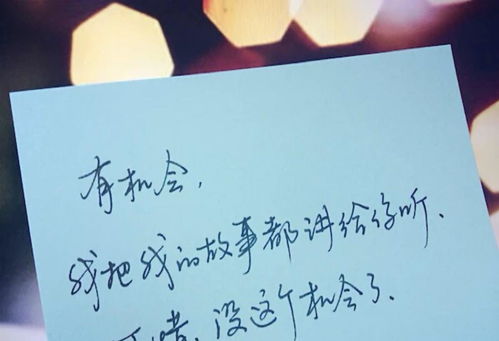 有机会，
我把我的故事都讲给你听、
可惜，没这个机会了、